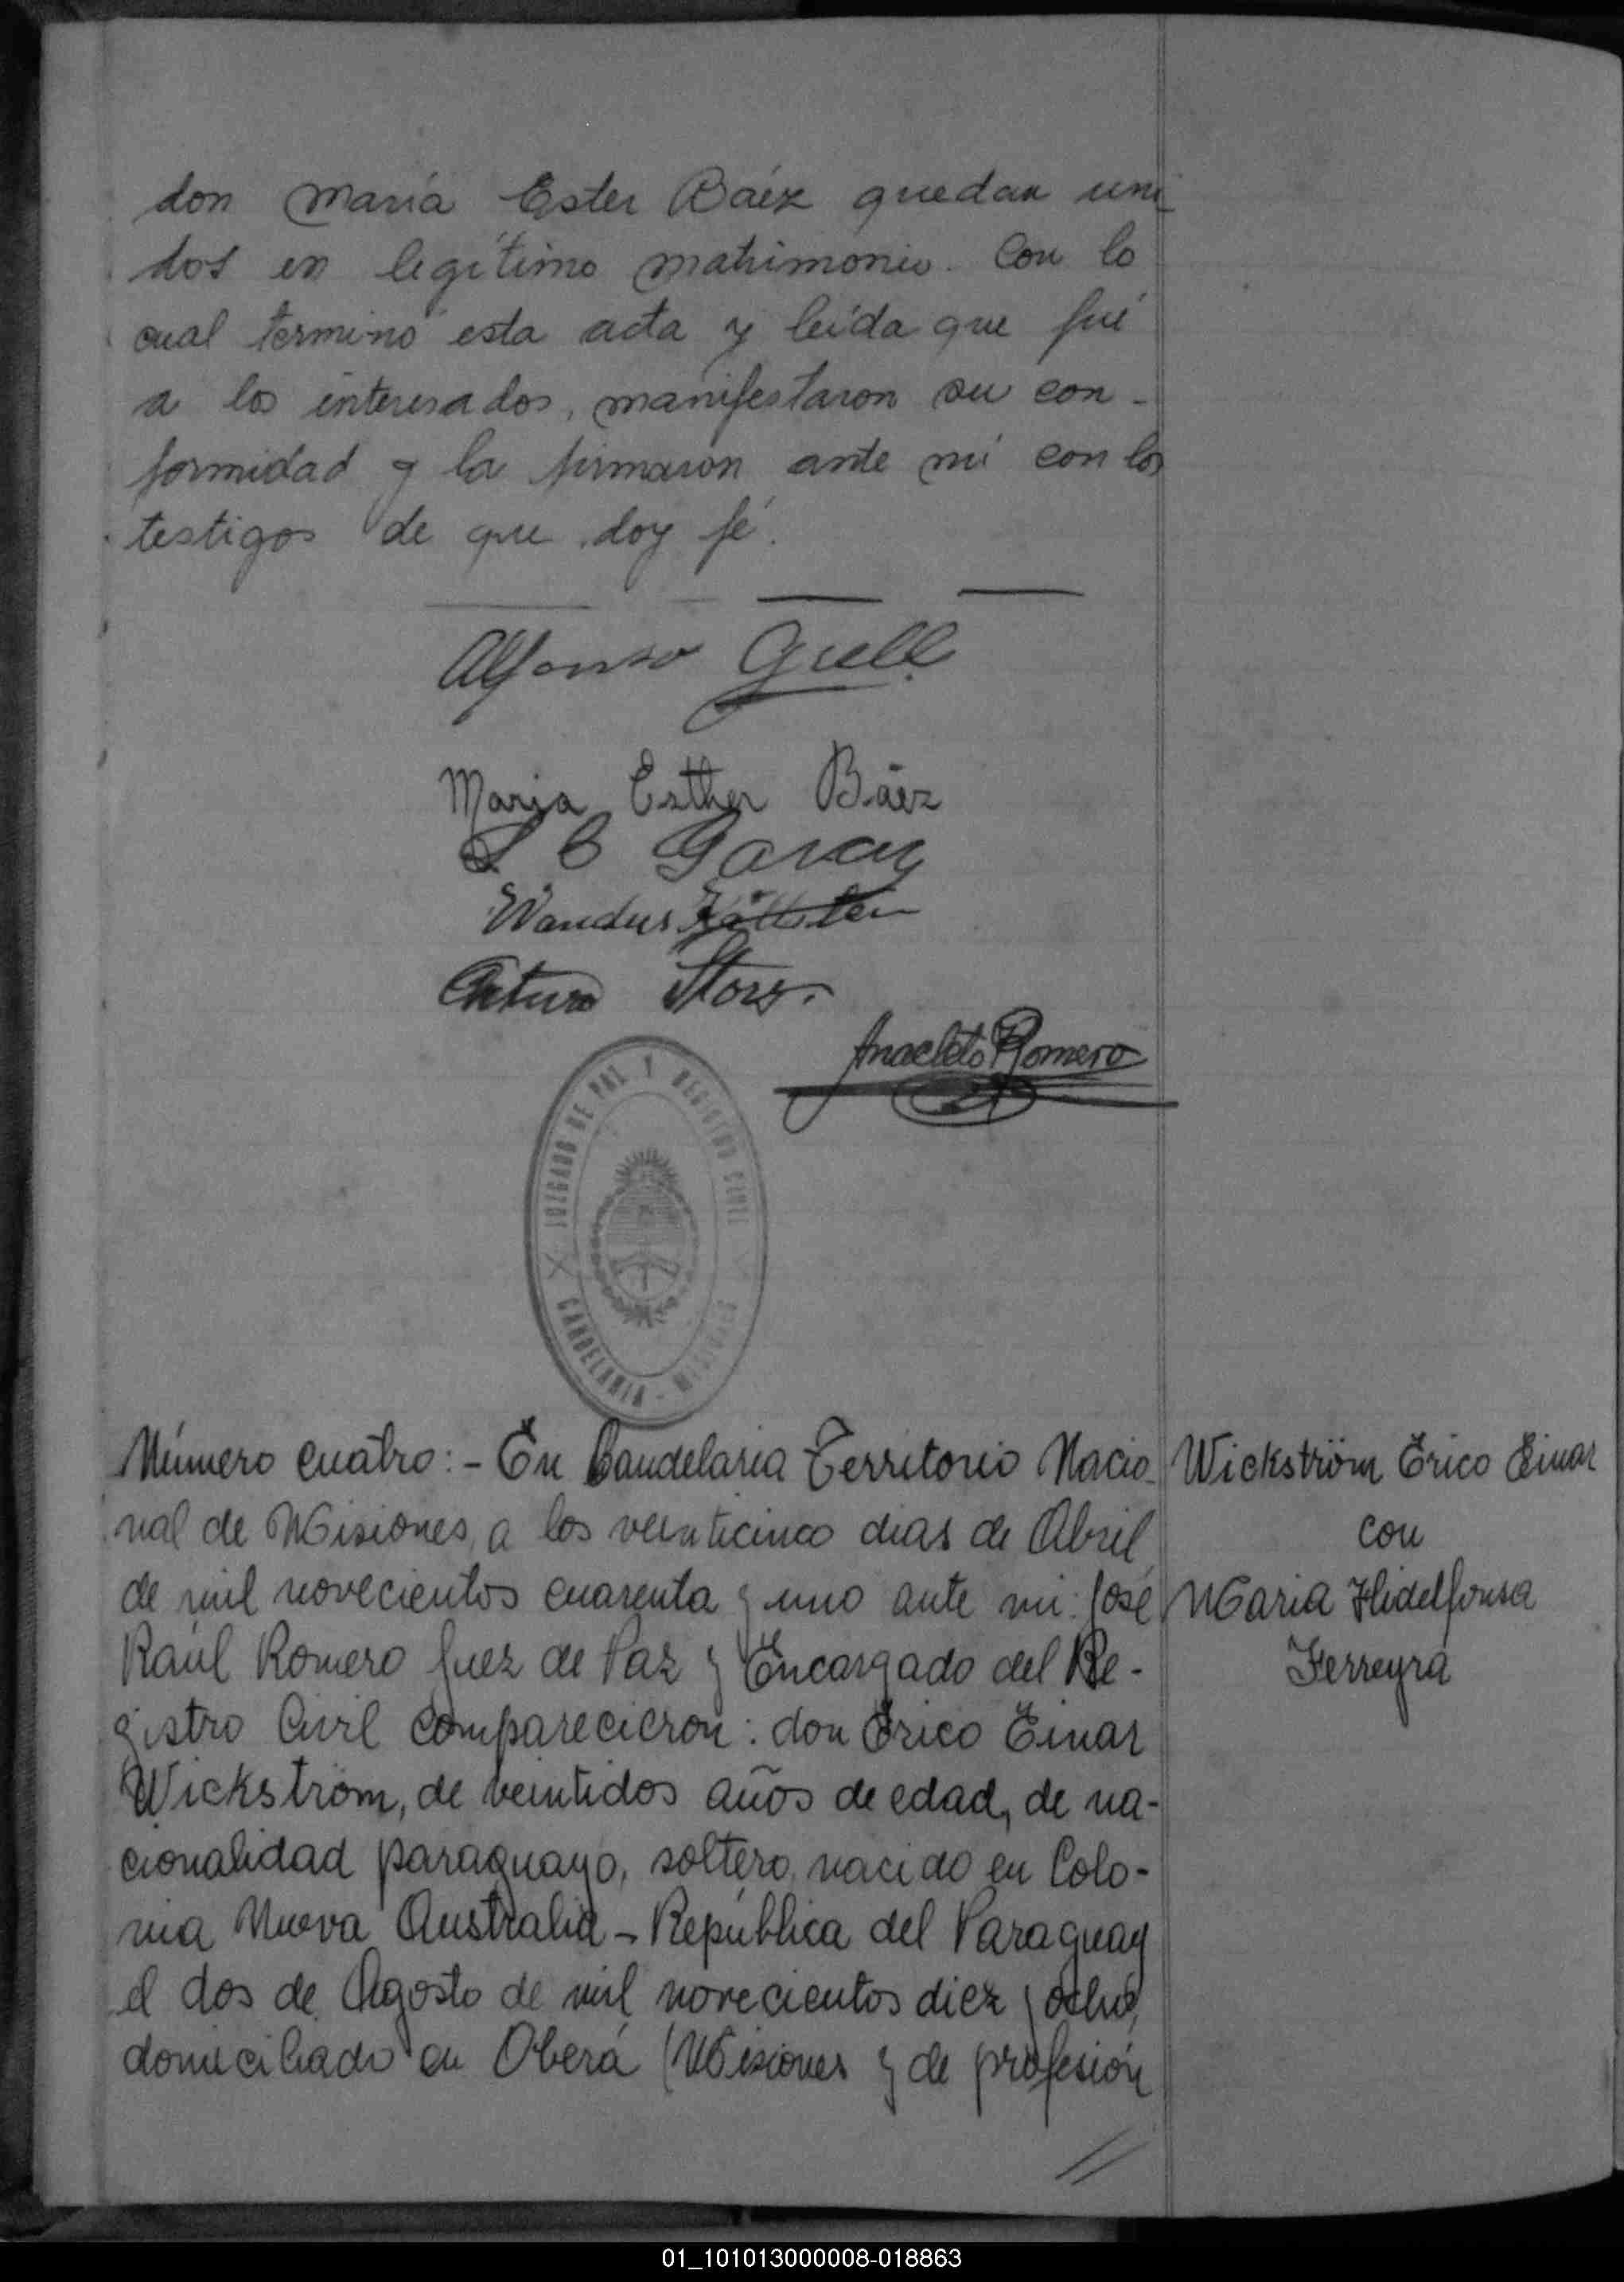 don María Ester Báez quedan uni
dos en legítimo matrimonio. Con lo
cual terminó esta acta y leída que fué
a los interesados, manifestaron su con-
formidad y la firmaron ante mi con los
testigos de que doy fé.
Alfonso Grell
Maria Esther Báez
Garay
Arturo Storz.
Anacleto Romero
JUZGADO DE PAZ Y REGISTRO CIVIL
CANDELARIA - MISIONES
Número cuatro:- En Candelaria Territorio Nacio-
nal de Misiones, a los veinticinco dias de Abril
de mil novecientos cuarenta y uno ante mi: José
Raúl Romero Juez de Paz y Encargado del Re-
gistro Civil comparecieron: don Erico Einar
Wickström, de veintidos años de edad, de na-
cionalidad paraguayo, soltero, nacido en Colo-
nia Nueva Australia - República del Paraguay
el dos de Agosto de mil novecientos diez y ocho,
domiciliado en Oberá (Misiones y de profesión
//
Wickström Erico Einar
con
Maria Hidelfonsa
Ferreyra
01_101013000008-018863